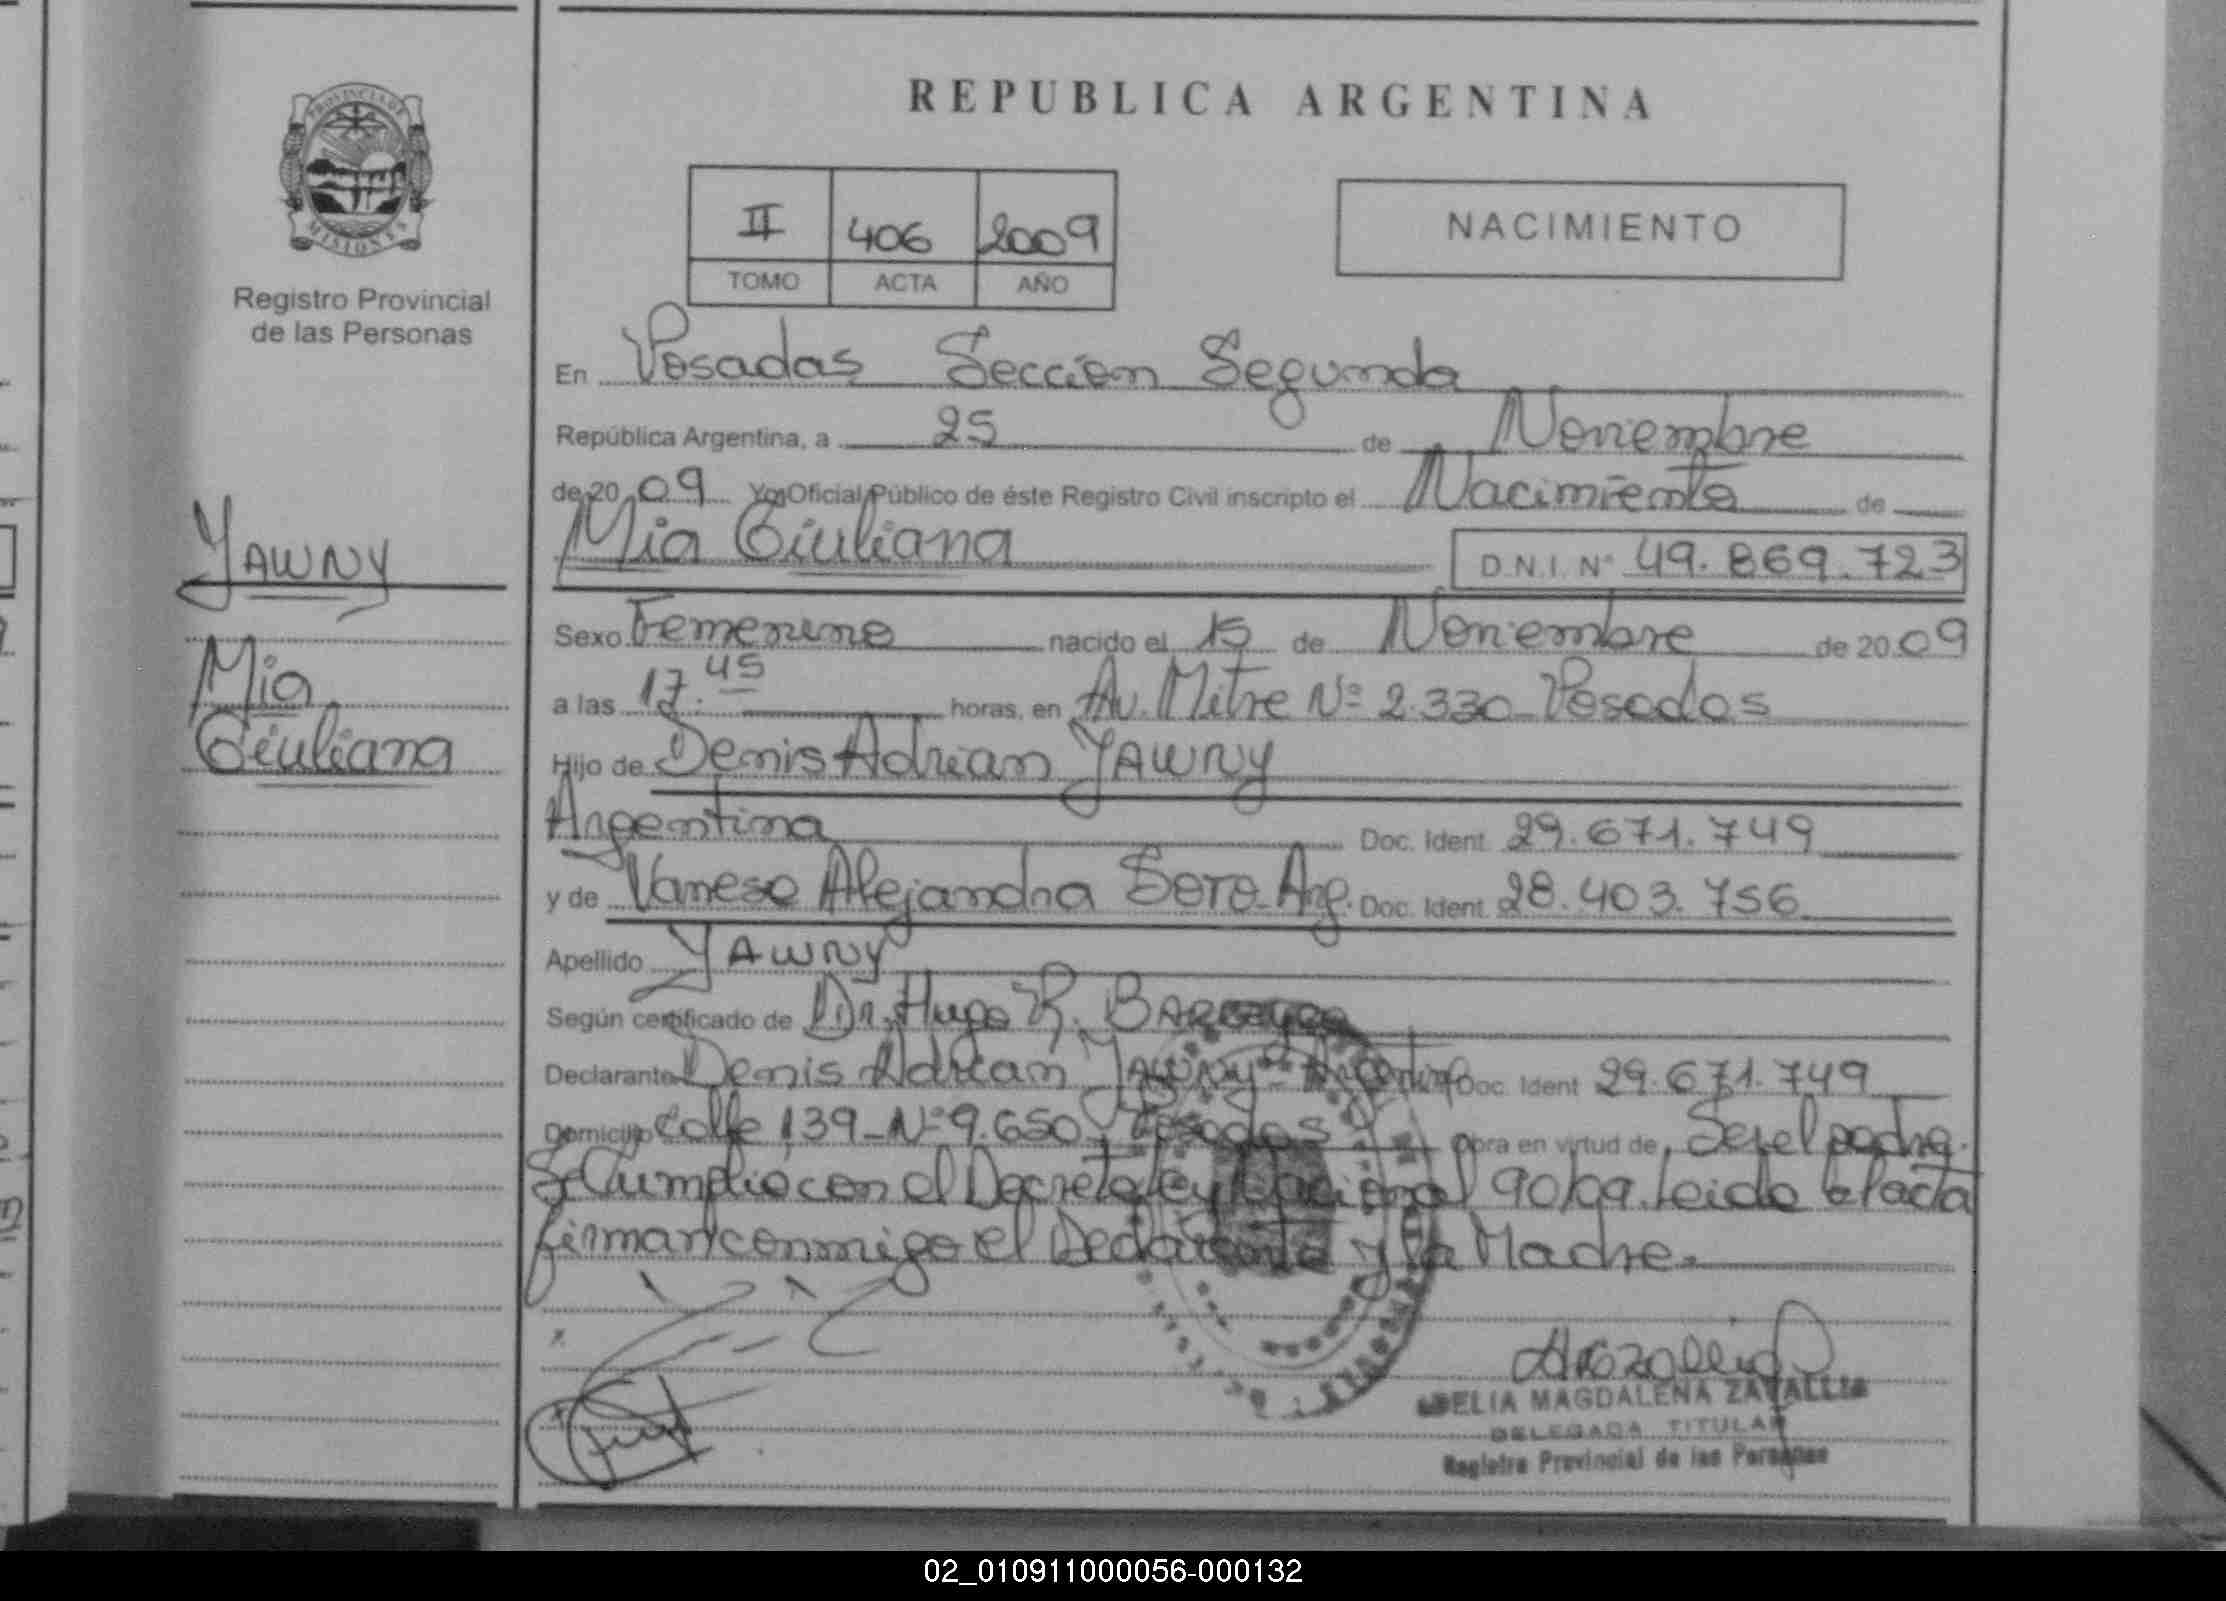 PROVINCIA DE
MISIONES
Registro Provincial
de las Personas
YAWNY
Mia
Giuliana
REPUBLICA ARGENTINA
II 406 2009
TOMO ACTA AÑO
NACIMIENTO
En Posadas Seccion Segunda
República Argentina, a 25 de Noviembre
de 2009 Yo, Oficial Público de éste Registro Civil inscripto el Nacimiento de
Mia Giuliana D.N.I. Nº 49.869.723
Sexo Femenino nacido el 15 de Noviembre de 2009
a las 17:45 horas, en Av. Mitre Nº 2.330 Posadas
Hijo de Denis Adrian YAWNY
Argentina Doc. Ident. 29.671.749
y de Vanesa Alejandra SOTO Arg. Doc. Ident. 28.403.756
Apellido YAWNY
Según certificado de Dr. Hugo R.
Declarante Denis Adrian YAWNY - Argentino Doc. Ident 29.671.749
Domicilio Calle 139 - Nº 9.650, Posadas obra en virtud de Ser el padre.
Se Cumplio con el Decreto Ley Nacional 90/09. Leida el acta
firman conmigo el Declarante y la Madre.
DELIA MAGDALENA ZAVALLIA
DELEGADA TITULAR
Registro Provincial de las Personas
02_010911000056-000132